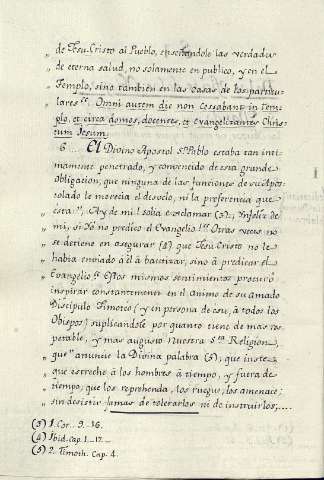 „ de Jesu-Cristo al Pueblo, enseñandole las verdades
„ de eterna salud, no solamente en publico, y en el
„ Templo, sino también en las casas de los particu-
„ lares ". Omni autem die non cessabant in tem-
plo, et circa domos, docentes, et Evangelizantes Chris-
tum Jesum.
6 ... El Divino Apostol Sn. Pablo estaba tan inti-
mamente penetrado, y convencido de esta grande
obligacion, que ninguna de las funciones de su Apos-
tolado le merecia el desvelo, ni la preferencia que
esta ". ¡Ay de mi! solia exclamar (3), Ynfeliz de
mi, si Yó no predico el Evangelio! " Otras veces no
se detiene en asegurar (4) que Jesu Cristo no le
había enviado à él à bautizar, sino à predicar el
Evangelio ". Estos mismos sentimientos procuró
inspirar constantemente en el animo de su amado
Discipulo Timoteo (y en persona de esu, à todos los
Obispos) suplicandole por quanto tiene de mas res-
petable, y mas augusto nuestra Sta. Religion,
„ que " anuncie la Divina palabra (5); que inste,
que estreche à los hombres à tiempo, y fuera de
„ tiempo, que los reprehenda, los ruegue, los amenace;
„ sin desistir jamas de tolerarlos ni de instruirlos;....
(3) 1. Cor... 9.-16.
(4) Ibid. cap. 1..-17.-
(5) 2. Timoth. Cap. 4.